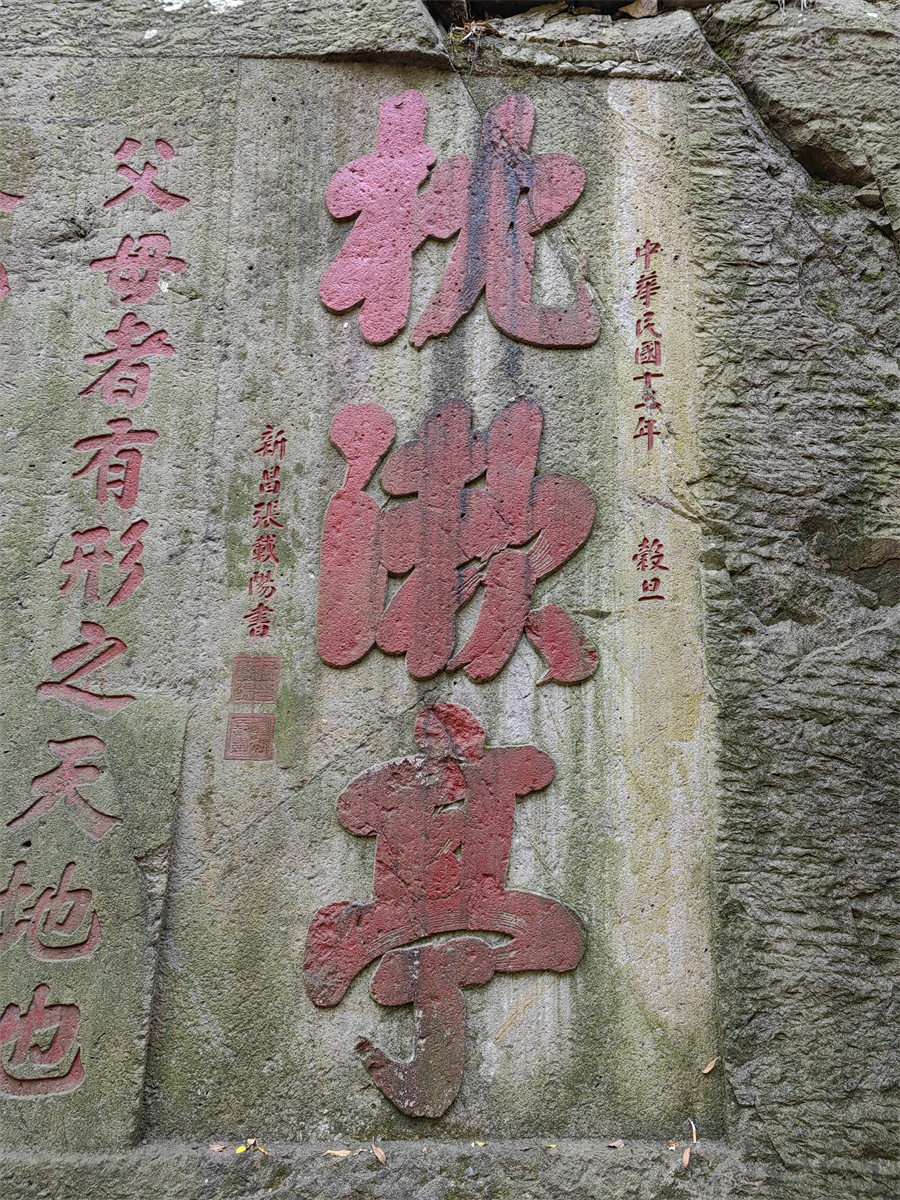 中華民國十七年 穀旦
枕漱亭
新昌張載陽書
父母者有形之天地也